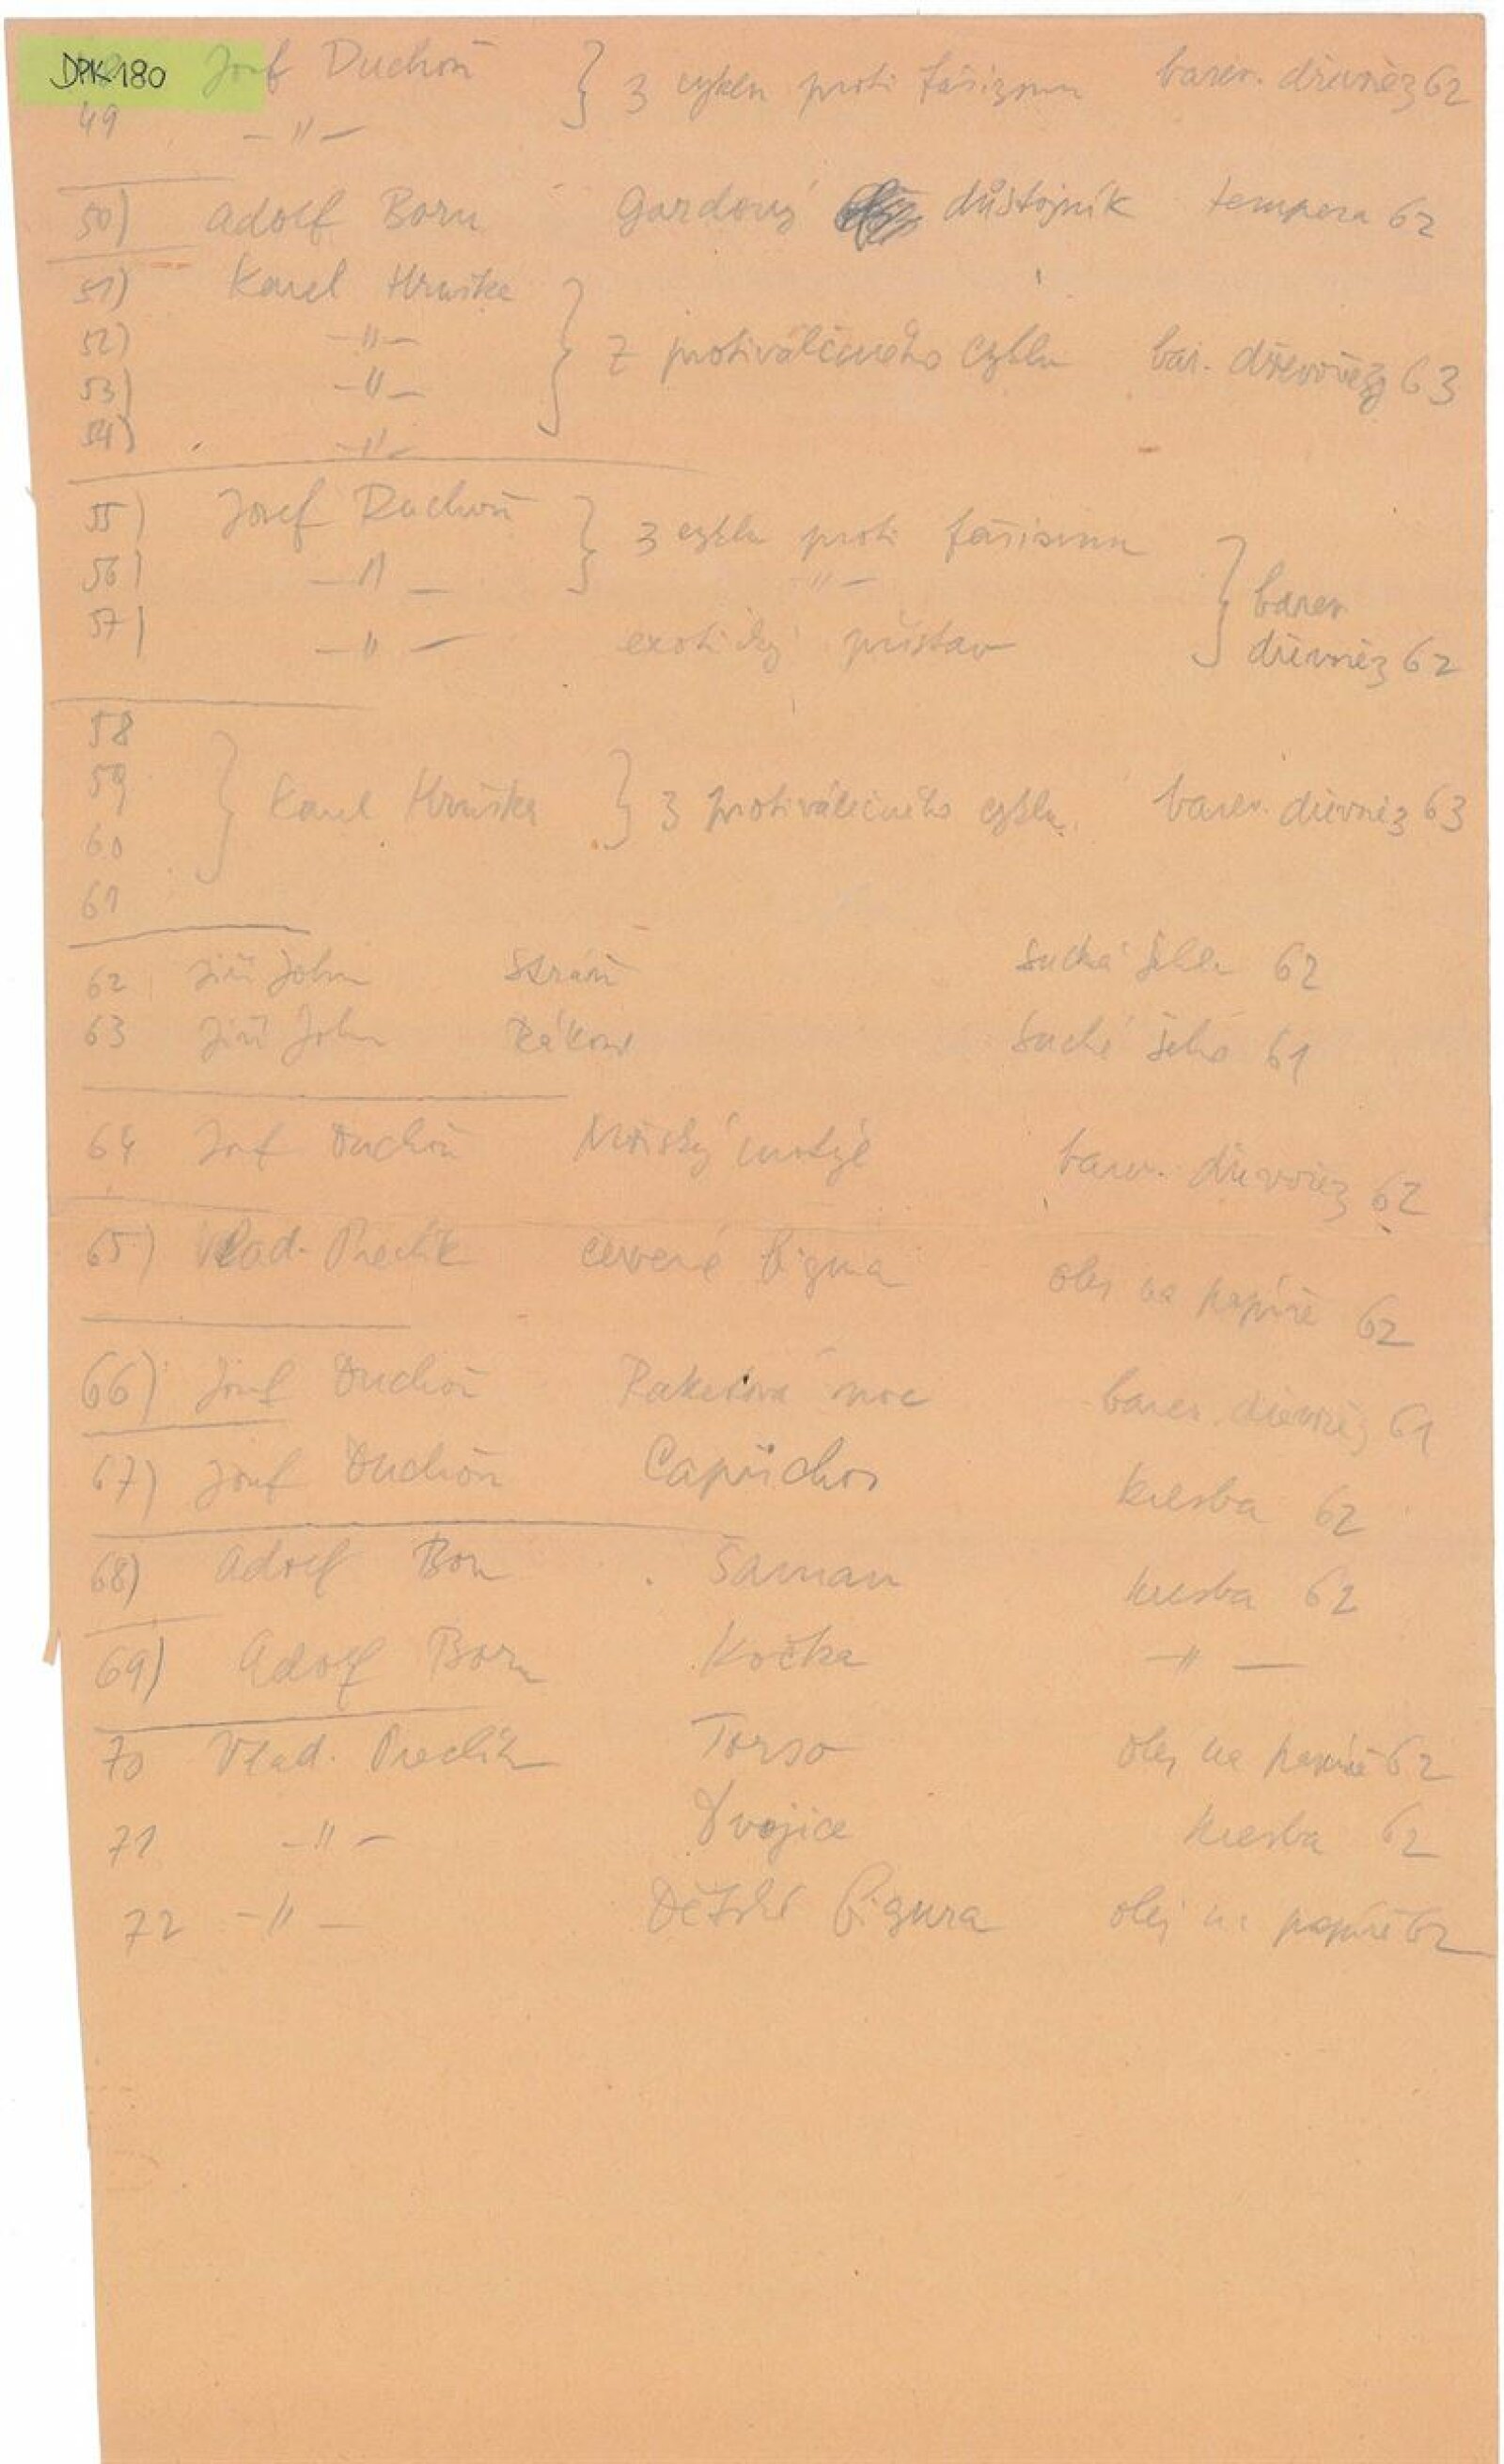 DPK 180 Josef Duchoň } z cyklu proti fašizmu barev. dřevořez 62
49 —"—
50) Adolf Born Gardový důstojník tempera 62
51) Karel Hruška
52) —"—
53) —"— } Z protiválečného cyklu bar. dřevořez 63
54) —"—
55) Josef Duchoň } z cyklu proti fašismu
56) —"— —"— } barev
57) —"— exotický přístav dřevořez 62
58
59
60 } Karel Hruška } z protiválečného cyklu barev. dřevořez 63
61
62 Jiří John Stráň suchá jehla 62
63 Jiří John suchá 61
64 Josef Duchoň Mořský motýl barev. dřevořez 62
65) Vlad. Preclík červená figura olej na papíře 62
66) Josef Duchoň Raketová noc barev. dřevořez 61
67) Josef Duchoň Capřichos kresba 62
68) Adolf Born Šaman kresba 62
69) Adolf Born Kočka —"—
70 Vlad. Preclík Torso olej na papíře 62
71 —"— Dvojice kresba 62
72 —"— Dětská figura olej na papíře 62